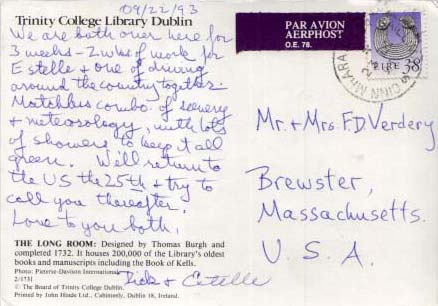 09/22/93
Trinity College Library Dublin
We are both over here for
3 weeks - 2 wks of work for
Estelle + one of driving
around the country together.
Matchless combo of scenery
+ meteorology, with lots
of showers to keep it all
green. Will return to
the US the 25th + try to
call you thereafter.
Love to you both,
Dick + Estelle
THE LONG ROOM: Designed by Thomas Burgh and
completed 1732. It houses 200,000 of the Library's oldest
books and manuscripts including the Book of Kells.
Photo: Pieterse-Davison International
2/1731
© The Board of Trinity College Dublin.
Printed by John Hinde Ltd., Cabinteely, Dublin 18, Ireland.
PAR AVION
AERPHOST
O.E. 78.
ÉIRE 38
Mr. + Mrs. F.D. Verdery
Brewster,
Massachusetts.
U.S.A.